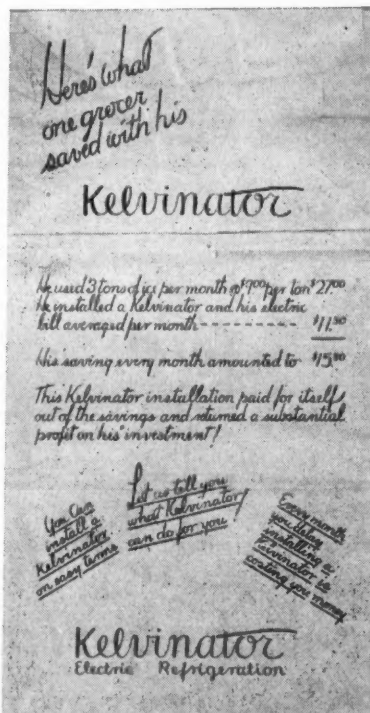 Here's what
one grocer
saved with his
Kelvinator
He used 3 tons of ice per month @ $9.00 per ton $27.00
He installed a Kelvinator and his electric
bill averaged per month ---------- $11.50
His saving every month amounted to $15.50
This Kelvinator installation paid for itself
out of the savings and returned a substantial
profit on his "investment!
You Can
install a
Kelvinator
on easy terms
Let us tell you
what Kelvinator
can do for you
Every month
you delay
installing a
Kelvinator is
costing you money
Kelvinator
Electric Refrigeration